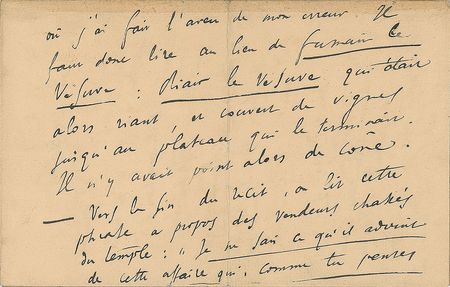 où j'ai fait l'aveu de mon erreur. Il
faut donc lire au lieu de fumait le
Vésuve : Riait le Vésuve qui était
alors riant et couvert de vignes
jusqu'au plateau qui le terminait.
Il n'y avait point alors de cône.
— Vers la fin du récit, on lit cette
phrase à propos des vendeurs chassés
du temple : "Je ne sais ce qu'il advint
de cette affaire qui, comme tu penses